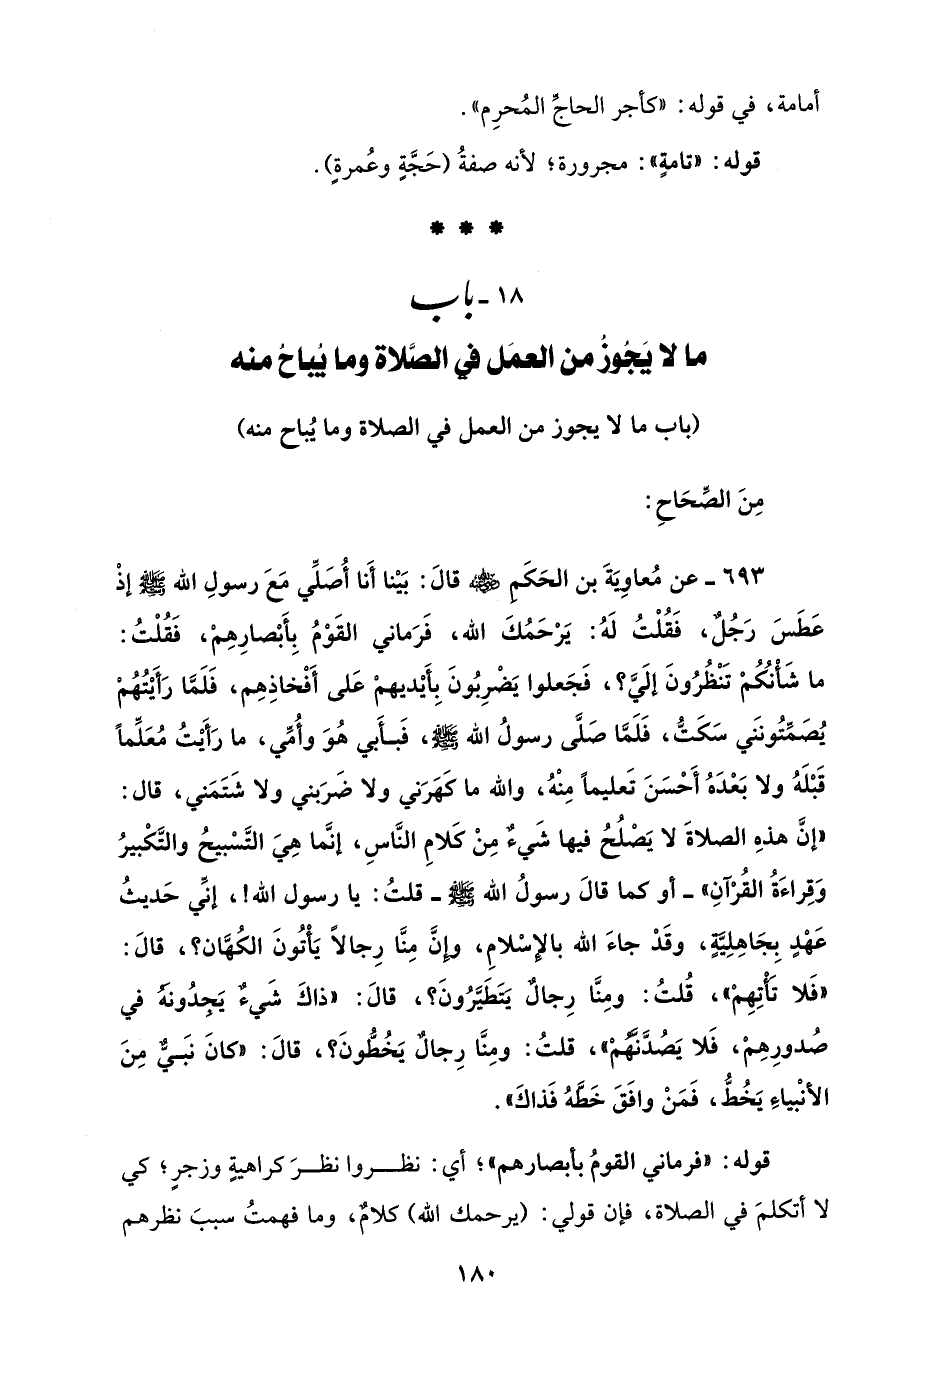 أمامة، في قوله: «كأجر الحاجِّ المُحرِم».
قوله: «تامةٍ»: مجرورة؛ لأنه صفةُ (حَجَّةٍ وعُمرةٍ).
* * *
١٨ - باب
ما لا يَجُوزُ من العمَل في الصَّلاة وما يُباحُ منه
(باب ما لا يجوز من العمل في الصلاة وما يُباح منه)
مِنَ الصِّحَاحِ:
٦٩٣ - عن مُعاوِيَةَ بن الحَكَمِ ﵁ قالَ: بَيْنا أَنا أُصَلِّي مَعَ رسولِ الله ﷺ إذْ
عَطَسَ رَجُلٌ، فَقُلْتُ لَهُ: يَرْحَمُكَ الله، فَرَماني القَوْمُ بِأَبْصارِهِمْ، فَقُلْتُ:
ما شَأْنُكُمْ تَنْظُرُونَ إلَيَّ؟، فَجَعلوا يَضْرِبُونَ بِأَيْديهمْ عَلى أَفْخاذِهِم، فَلَمَّا رَأَيْتُهُمْ
يُصَمِّتُونَني سَكَتُّ، فَلَمَّا صَلَّى رسولُ الله ﷺ، فَبِأَبي هُوَ وأُمِّي، ما رَأَيْتُ مُعَلِّماً
قَبْلَهُ ولا بَعْدَهُ أَحْسَنَ تَعليماً مِنْهُ، والله ما كَهَرَني ولا ضَرَبَني ولا شَتَمَني، قال:
«إنَّ هذهِ الصلاةَ لا يَصْلُحُ فيها شَيءٌ مِنْ كَلامِ النَّاسِ، إنَّما هِيَ التَّسْبيحُ والتَّكْبيرُ
وَقِراءَةُ القُرْآنِ» - أو كما قالَ رسولُ الله ﷺ - قلتُ: يا رسول الله!، إنِّي حَديثُ
عَهْدٍ بِجَاهِلِيَّةٍ، وقَدْ جاءَ الله بالإسْلامِ، وإنَّ مِنَّا رِجالاً يَأْتُونَ الكُهَّان؟، قالَ:
«فَلا تَأْتِهِمْ»، قُلتُ: ومِنَّا رِجالٌ يَتَطَيَّرُونَ؟، قالَ: «ذاكَ شَيءٌ يَجِدُونهُ في
صُدورِهِمْ، فَلا يَصُدَّنَّهُمْ»، قلتُ: ومِنَّا رِجالٌ يَخُطُّونَ؟، قالَ: «كانَ نَبيٌّ مِنَ
الأنْبياءِ يَخُطُّ، فَمَنْ وافَقَ خَطَّهُ فَذاكَ».
قوله: «فرماني القومُ بأبصارهم»؛ أي: نظروا نظرَ كراهيةٍ وزجرٍ؛ كي
لا أتكلمَ في الصلاة، فإن قولي: (يرحمك الله) كلامٌ، وما فهمتُ سببَ نظرهم
١٨٠